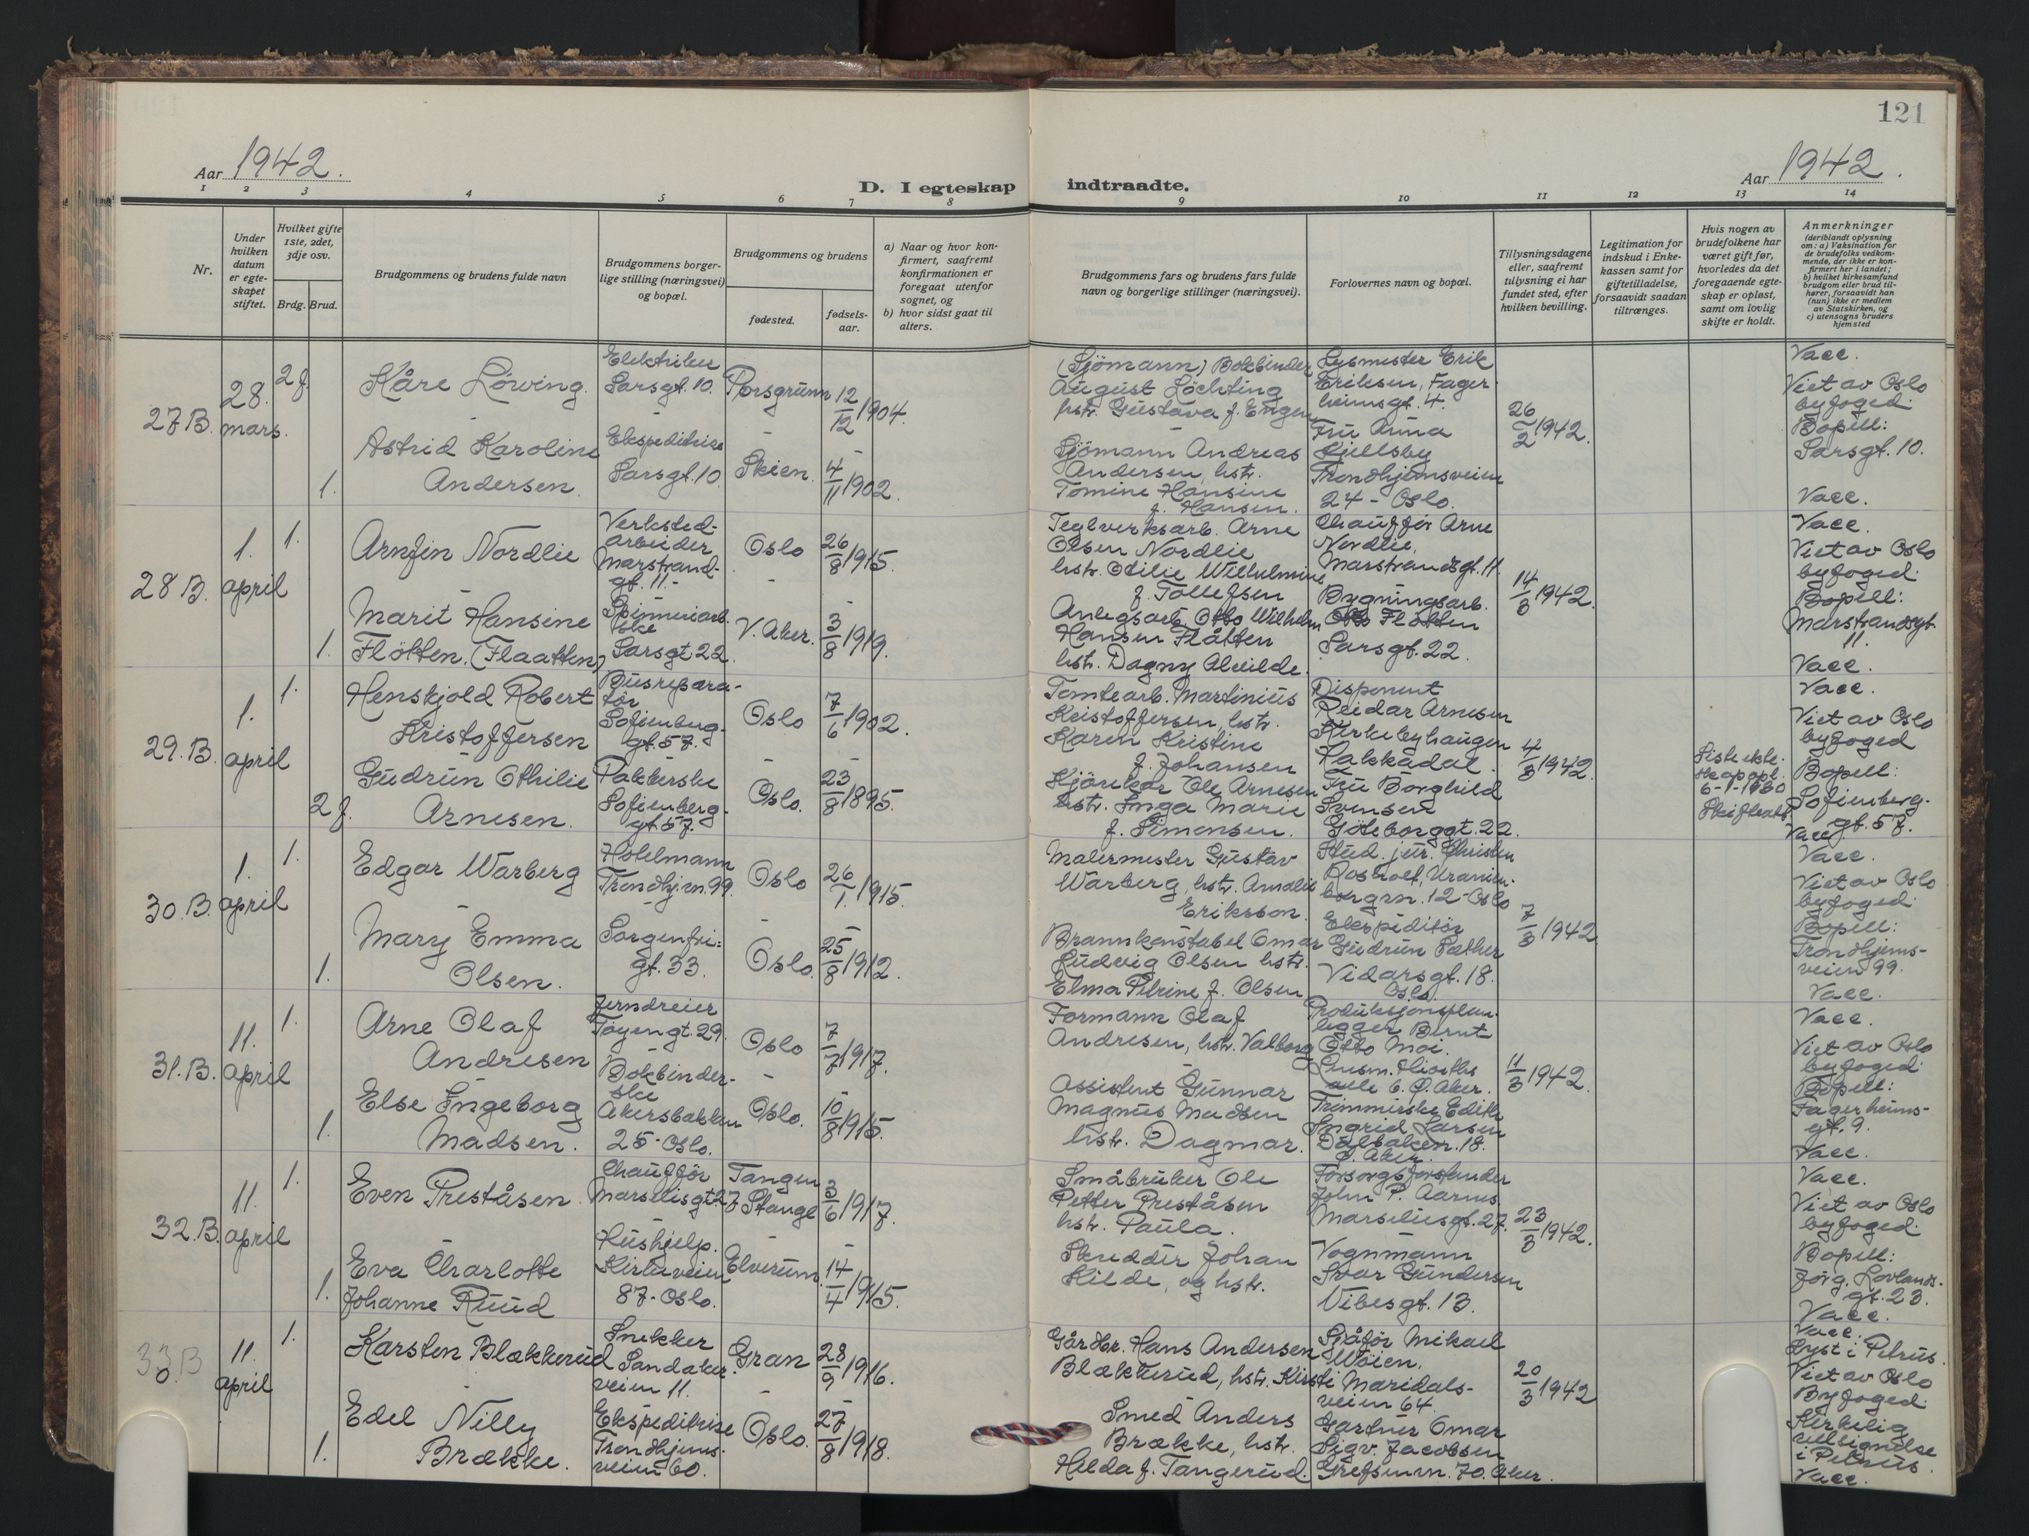 121
Aar 1942.
D. I egteskap indtraadte.
Aar 1942.
1 2 3 4 5 6 7 8 9 10 11 12 13 14
Nr.
Under hvilken datum er egteskapet stiftet.
Hvilket gifte 1ste, 2det, 3dje osv.
Brdg. Brud.
Brudgommens og brudens fulde navn
Brudgommens borgerlige stilling (næringsvei) og bopæl.
Brudgommens og brudens
fødested.
fødselsaar.
a) Naar og hvor konfirmert, saafremt konfirmationen er foregaat utenfor sognet, og
b) hvor sidst gaat til alters.
Brudgommens fars og brudens fars fulde navn og borgerlige stillinger (næringsvei).
Forlovernes navn og bopæl.
Tillysningsdagene eller, saafremt tillysning ei har fundet sted, efter hvilken bevilling.
Legitimation for indskud i Enkekassen samt for giftetilladelse, forsaavidt saadan tiltrænges.
Hvis nogen av brudefolkene har været gift før, hvorledes da det foregaaende egteskap er opløst, samt om lovlig skifte er holdt.
Anmerkninger (deriblandt oplysning om: a) Vaksination for de brudefolks vedkommende, der ikke er konfirmert her i landet; b) hvilket kirkesamfund brudgom eller brud tilhører, forsaavidt han (hun) ikke er medlem av Statskirken, og c) utensogns bruders hjemsted
27B. 28. mars. 2 f.
Kåre Löwing.
Elektriker
Sarsgt. 10.
Porsgrunn 12/12 1904.
(Sjömann) Bokbinder
August Löchting
hstr. Gustava f. Engen
Lysmester Erik
Eriksen, Fager-
heimsgt. 4.
26/2 1942.
Vacc.
Viet av Oslo
byfoged.
Bopæll:
Sarsgt. 10.
1.
Astrid Karoline
Andersen.
Ekspeditrise
Sarsgt. 10.
Skien. 4/11 1902.
Sjömann Andreas
Andersen, hstr.
Tomine Hansine
f. Hansen.
Fru Anna
Kjellsby
Trondhjemsveien
24 - Oslo.
Vacc.
28B. 1. april 1.
Arnfin Nordlie
Verksted-
arbeider
Marstrand-
gt. 11.-
Oslo 26/8 1915.
Teglverksarb. Arne
Olsen Nordlie
hstr. Otilie Wilhelmine
f. Tollefsen
Chauffør Arne
Nordlie,
Marstrandsgt. 11.
14/3 1942.
Vacc.
Viet av Oslo
byfoged.
Bopæll:
Marstrandsgt.
11.
1.
Marit Hansine
Flötten. (Flaatten)
Spinneriarb.
ske
Sarsgt 22.
V. Aker. 3/8 1919.
Anlegsarb. Otto Wilhelm
Hansen Flåtten
hstr. Dagny Alvilde.
Bygningsarb.
Otto Flötten
Sarsgt. 22.
Vacc.
29.B. 1. april 1.
Henskjold Robert
Kristoffersen
Busrepara-
tör
Sofienberg-
gt. 57.
Oslo 7/6 1902.
Tomtearb. Martinius
Kristoffersen, hstr.
Karen Kristine
f. Johansen
Disponent
Reidar Arnesen
Kirkebyhaugen
Hakkadal.
4/3 1942.
Vacc.
Viet av Oslo
byfoged
Bopæll:
Sofienberg-
gt. 57.
2 f.
Gudrun Othilie
Arnesen.
Pakkerske
Sofienberg-
gt. 57.
Oslo. 23/8 1895.
Kjörekar Ole Arnesen
hstr. Inga Marie
f. Simonsen.
Fru Borghild
Svensen
Göteborggt. 22.
Vacc.
30.B. 1. april 1.
Edgar Warberg
Trondhj.vn. 99.
Oslo 26/1 1915.
Malermester Gustav
Warberg, hstr. Amalie
Eriksson.
Stud. jur. Christen
Uranien-
borgvn. 12 - Oslo
7/3 1942.
Vacc.
Viet av Oslo
byfoged.
Bopæll:
Trondhjems-
veien 99.
1.
Mary Emma
Olsen.
Sorgenfri-
gt. 33.
Oslo. 25/8 1912.
Brannkonstabel Omar
Ludvig Olsen hstr.
Elma Petrine f. Olsen
Ekspeditör
Gudrun Sæther
Vidarsgt. 18.
Oslo.
Vacc.
31.B. 11. april 1.
Arne Olaf
Andresen
Jerndreier
Töyengt. 29.
Oslo 7/7 1917.
Formann Olaf
Andresen, hstr. Valborg
Produksjonsplan-
legger Bernt
Otto Moi.
11/3 1942.
Vacc.
Viet av Oslo
byfoged.
Bopæll:
Fagerheims-
gt. 9.
1.
Else Ingeborg
Madsen.
Bokbinder-
ske
Akersbakken
25 - Oslo.
Oslo. 10/8 1915.
Assistent Gunnar
Magnus Madsen
hstr. Dagmar.
Trimmerske Edith
Ingrid Larsen
Dalbakken. 18.
Ö. Aker.
Vacc.
32.B. 11. april 1.
Even Preståsen
Chauffør
Marseliisgt. 27
Tangen
Stange 3/6 1917.
Småbruker Ole
Petter Preståsen
hstr. Paula.
Forsorgsforstander
John P. Aarnes
Marseliusgt. 27.
23/3 1942.
Vacc.
Viet av Oslo
byfoged.
Bopæll:
Jörg. Lovlands-
gt. 23.
1.
Eva Charlotte
Johanne Ruud
Hushjelp.
Kirkeveien
87 - Oslo.
Elverum. 14/4 1915.
Skredder Johan
Kilde, og hstr.
Vognmann
Ivar Gundersen
Vibesgt. 13.
Vacc.
33B 11. april 1.
Karsten Blækkerud
Snekker
Sandaker-
veien 11.
Gran 28/9 1916.
Gårdbr. Hans Andersen
Blækkerud, hstr. Kirsti
Sjåför Mikael
Möien.
Maridals-
veien 64.
20/3 1942
Vacc.
Lyst i Petrus.
Viet av Oslo
Byfoged.
Kirkelig
velsignelse
i Petrus.
1.
Edel Nilly
Brække.
Ekspeditrise
Trondhjems-
veien 60.
Oslo. 27/8 1918.
Smed Anders
Brække, hstr.
Hilda f. Tangerud.
Gartner Omar
Sigv. Jacobsen
Grefsenvn. 70. Aker.
Vacc.